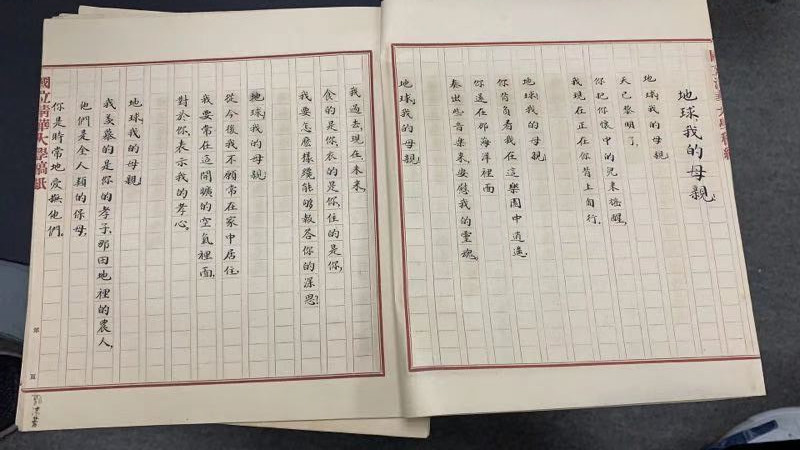 地球,我的母親
地球,我的母親
天已黎明了,
你把你懷中的兒來搖醒,
我現在正在你背上匍行.
地球,我的母親
你背負着我在這樂園中逍遙,
你還在那海洋裡面
奏出些音樂來,安慰我的靈魂.
地球,我的母親
我過去,現在,未來,
食的是你,衣的是你,住的是你,
我要怎麼樣纔能够報答你的深恩?
地球,我的母親
從今後我不願常在家中居住,
我要常在這開曠的空氣裡面,
對於你,表示我的孝心.
地球,我的母親
我羨慕的是你的孝子,那田地裡的農人,
他們是全人類的保母,
你是時常地愛撫他們.
國立清華大學稿紙
第 頁